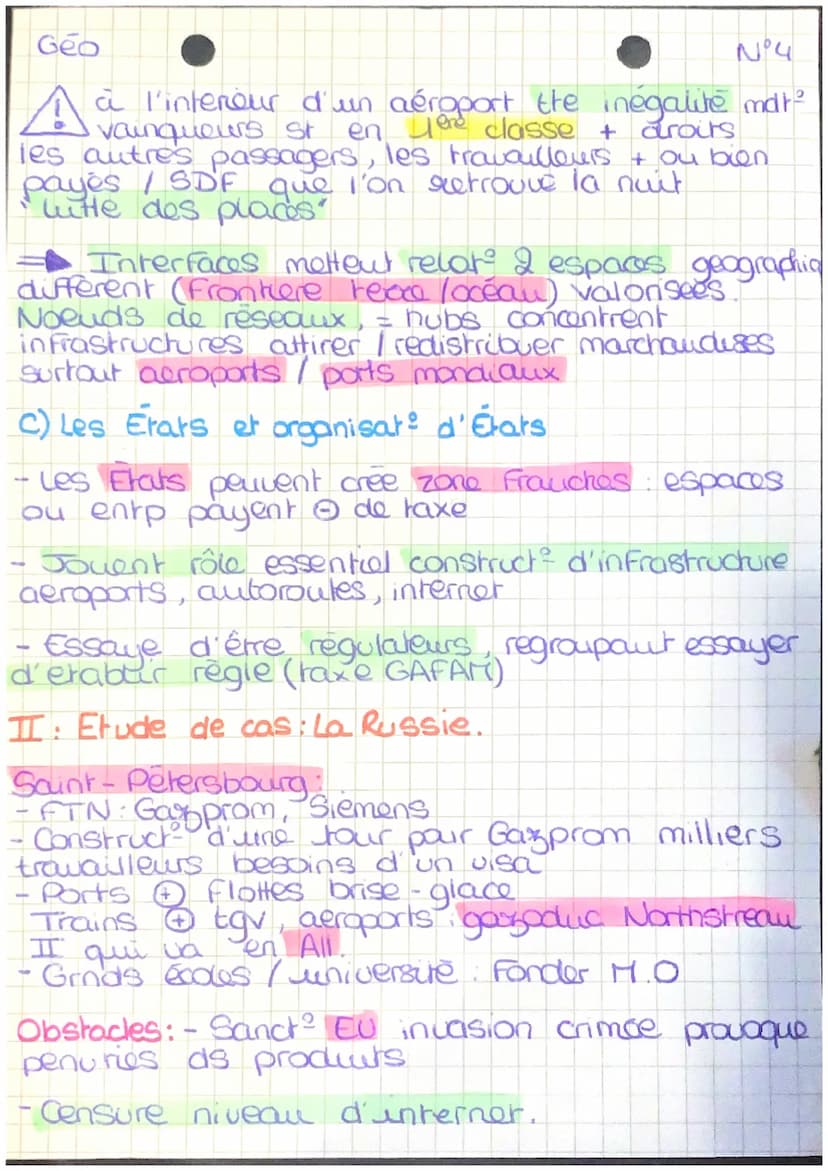 Géo N°4
à l'interieur d'un aéroport tte inégalité mdt°
vainqueurs st en 1ère classe + droits
les autres passagers, les travailleurs + ou bien
payés / SDF que l'on retrouve la nuit
"lutte des places"
⇒ Interfaces mettent relat° 2 espaces geographiq
différent (frontiere terre/océan) valorisées.
Noeuds de réseaux, = hubs concentrent
infrastructures attirer / redistribuer marchandises
surtout aeroports / ports mondiaux
C) Les États et organisat° d'États
- Les États peuvent crée zone franches : espaces
ou entp payent ⊖ de taxe
- Jouent rôle essentiel construct° d'infrastructure
aeroports, autoroutes, internet
- Essaye d'être régulateurs, regroupant essayer
d'etablir règle (taxe GAFAM)
II : Etude de cas : La Russie.
Saint-Pétersbourg :
- FTN : Gazprom, Siemens
- Construct° d'une tour pour Gazprom milliers
travailleurs besoins d'un visa
- Ports ⊕ flottes brise-glace
Trains ⊕ tgv, aeroports : gazoduc Northstream
II qui va en All.
- Grnds écoles / université : Fonder M.O
Obstacles : - Sanct° EU invasion crimée provoque
penuries ds produits
- Censure niveau d'internet.